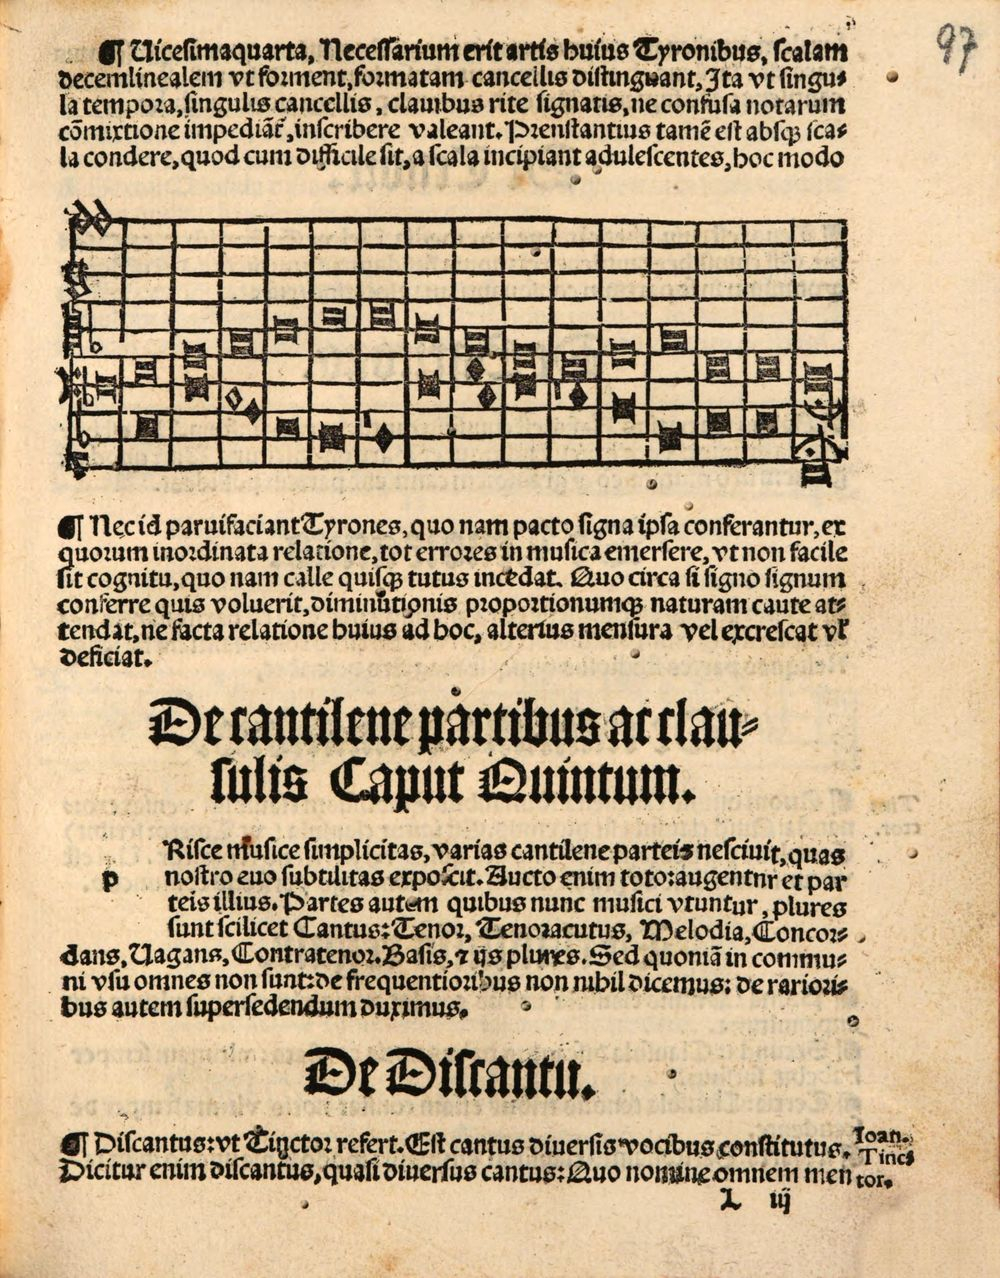 97
¶ Uicesimaquarta, Necessarium erit artis huius Tyronibus, scalam
decemlinealem vt forment, formatam cancellis distinguant, Ita vt singu⸗
la tempora, singulis cancellis, clauibus rite signatis, ne confusa notarum
cōmixtione impediāt, inscribere valeant. Prenstantius tamē est absqꝫ sca⸗
la condere, quod cum difficile sit, a scala incipiant adulescentes, hoc modo
dd
¶ Nec id paruifaciant Tyrones, quo nam pacto signa ipsa conferantur, ex
quorum inordinata relatione, tot errores in musica emersere, vt non facile
sit cognitu, quo nam calle quisqꝫ tutus incedat. Quo circa si signo signum
conferre quis voluerit, diminutionis proportionumqꝫ naturam caute at⸗
tendat, ne facta relatione huius ad hoc, alterius mensura vel excrescat vl̓
deficiat.
De cantilene partibus ac clau⸗
sulis Caput Quintum.
Risce musice simplicitas, varias cantilene parteis nesciuit, quas
p nostro euo subtilitas exposcit. Aucto enim toto: augentur et par
teis illius. Partes autem quibus nunc musici vtuntur, plures
sunt scilicet Cantus: Tenor, Tenoracutus, Melodia, Concor⸗
dans, Uagans, Contratenor. Basis, ⁊ ijs plures. Sed quoniā in commu⸗
ni vsu omnes non sunt: de frequentioribus non nihil dicemus: de rariori⸗
bus autem supersedendum duximus.
De Discantu.
¶ Discantus: vt Tinctor refert. Est cantus diuersis vocibus constitutus. Ioan.
Tinct
Dicitur enim discantus, quasi diuersus cantus: Quo nomine omnem men tor.
L iij